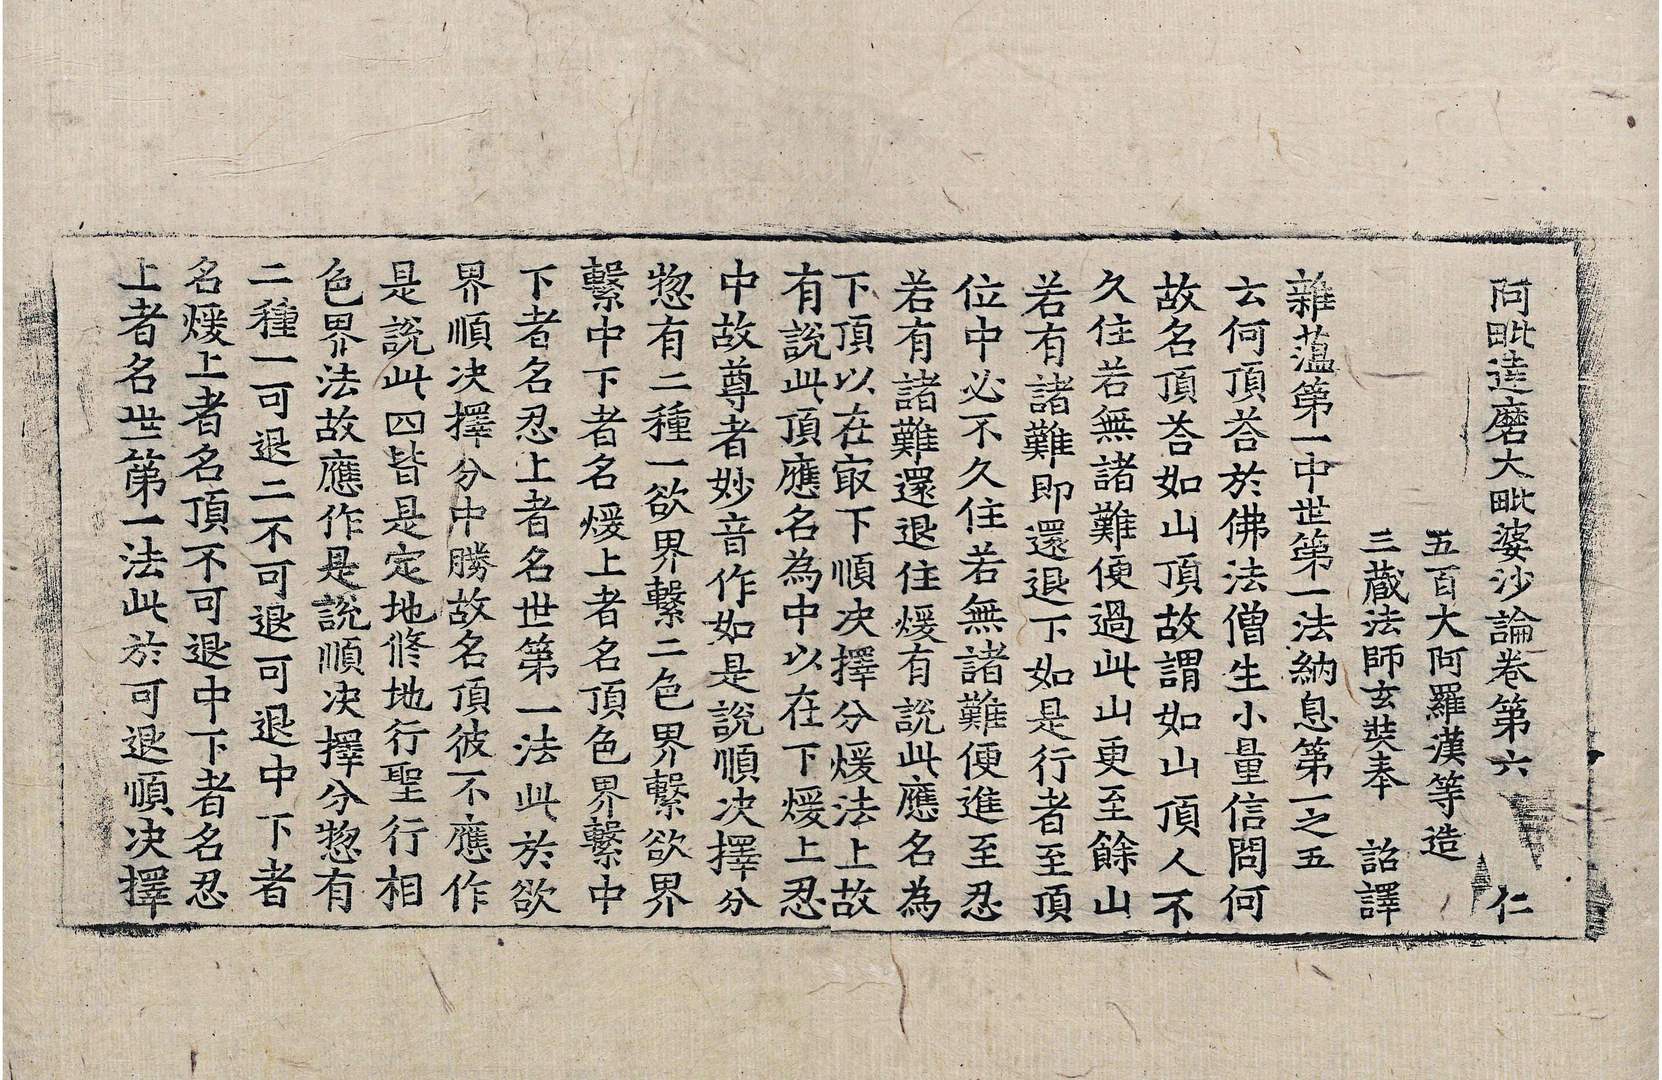 阿毗達磨大毗婆沙論卷第六 仁
五百大阿羅漢等造
三藏法師玄奘奉 詔譯
雜蘊第一中世第一法納息第一之五
云何頂荅於佛法僧生小量信問何
故名頂荅如山頂故謂如山頂人不
久住若無諸難便過此山更至餘山
若有諸難即還退下如是行者至頂
位中必不久住若無諸難便進至忍
若有諸難還退住煖有說此應名為
下頂以在㝡下順决擇分煖法上故
有說此頂應名為中以在下煖上忍
中故尊者妙音作如是說順决擇分
惣有二種一欲界繫二色界繫欲界
繫中下者名煖上者名頂色界繫中
下者名忍上者名世第一法此於欲
界順决擇分中勝故名頂彼不應作
是說此四皆是定地修地行聖行相
色界法故應作是說順决擇分惣有
二種一可退二不可退可退中下者
名煖上者名頂不可退中下者名忍
上者名世第一法此於可退順决擇